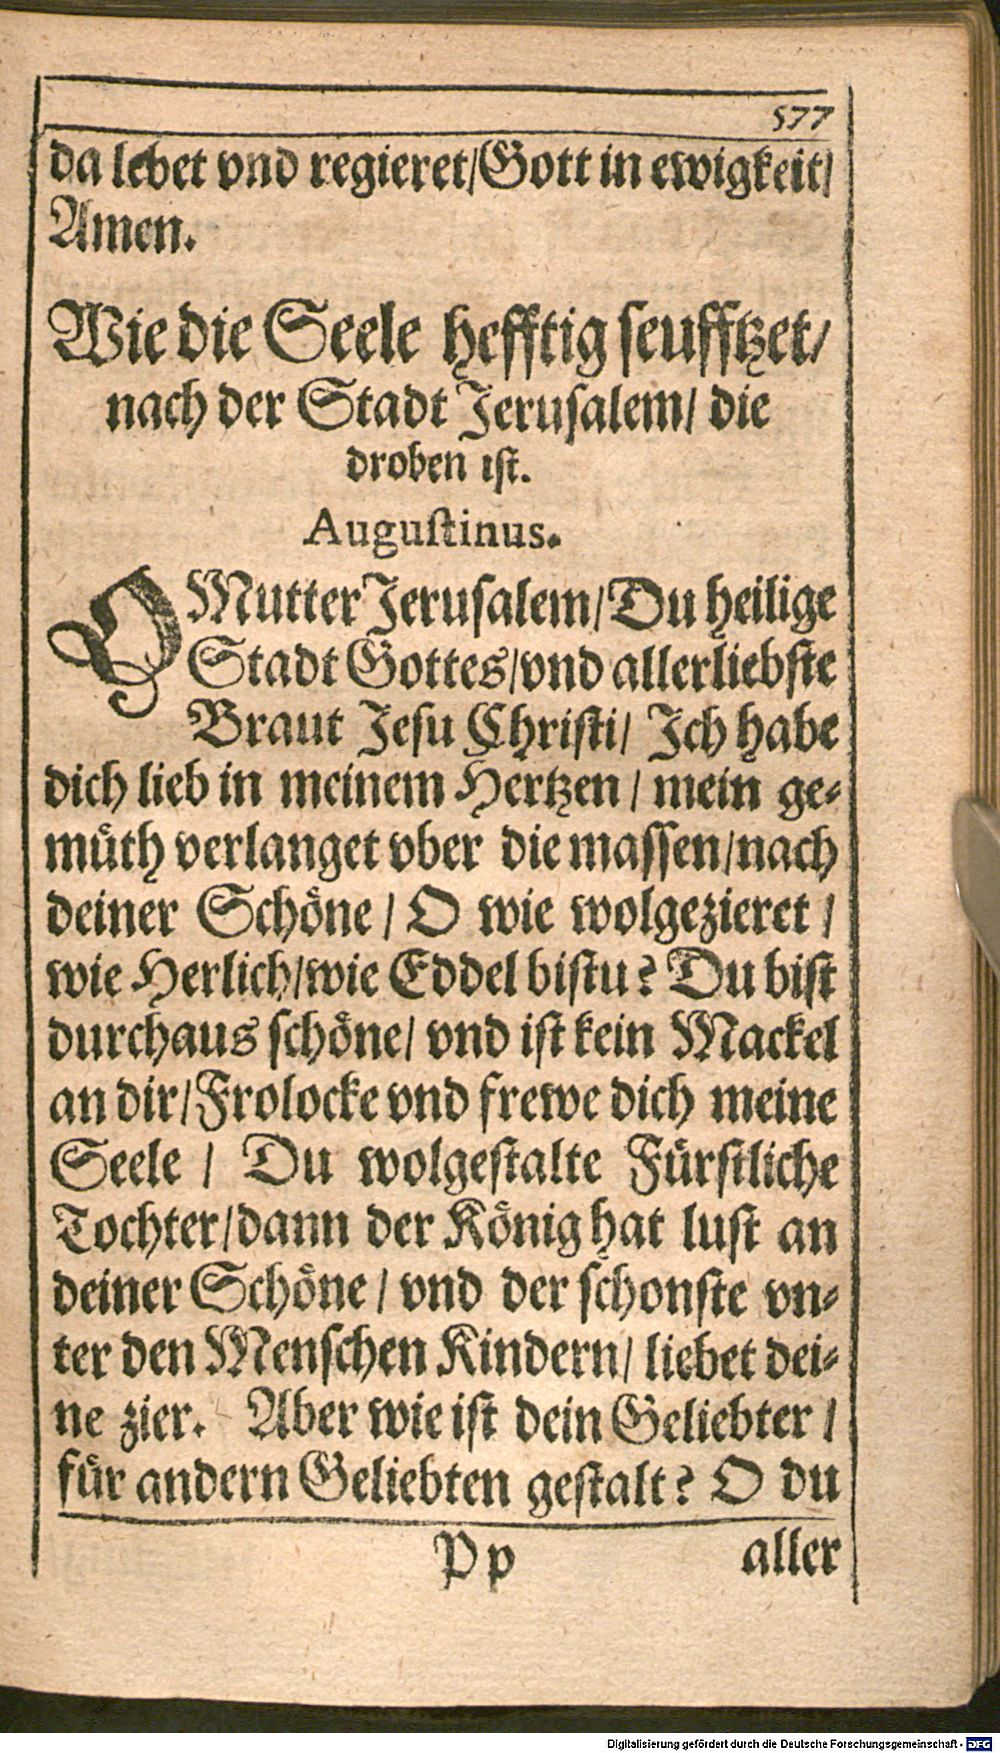 577
da lebet vnd regieret/Gott in ewigkeit/
Amen.
Wie die Seele hefftig seufftzet/
nach der Stadt Jerusalem/ die
droben ist.
Augustinus.
O Mutter Jerusalem/Du heilige
Stadt Gottes/vnd allerliebste
Braut Jesu Christi/ Ich habe
dich lieb in meinem Hertzen / mein ge-
muͤth verlanget vber die massen/nach
deiner Schoͤne / O wie wolgezieret /
wie Herlich/wie Eddel bistu? Du bist
durchaus schoͤne/ vnd ist kein Mackel
an dir/Frolocke vnd frewe dich meine
Seele / Du wolgestalte Fuͤrstliche
Tochter/dann der Koͤnig hat lust an
deiner Schoͤne / vnd der schonste vn-
ter den Menschen Kindern/ liebet dei-
ne zier. Aber wie ist dein Geliebter /
fuͤr andern Geliebten gestalt? O du
Pp aller
Digitalisierung gefördert durch die Deutsche Forschungsgemeinschaft - DFG